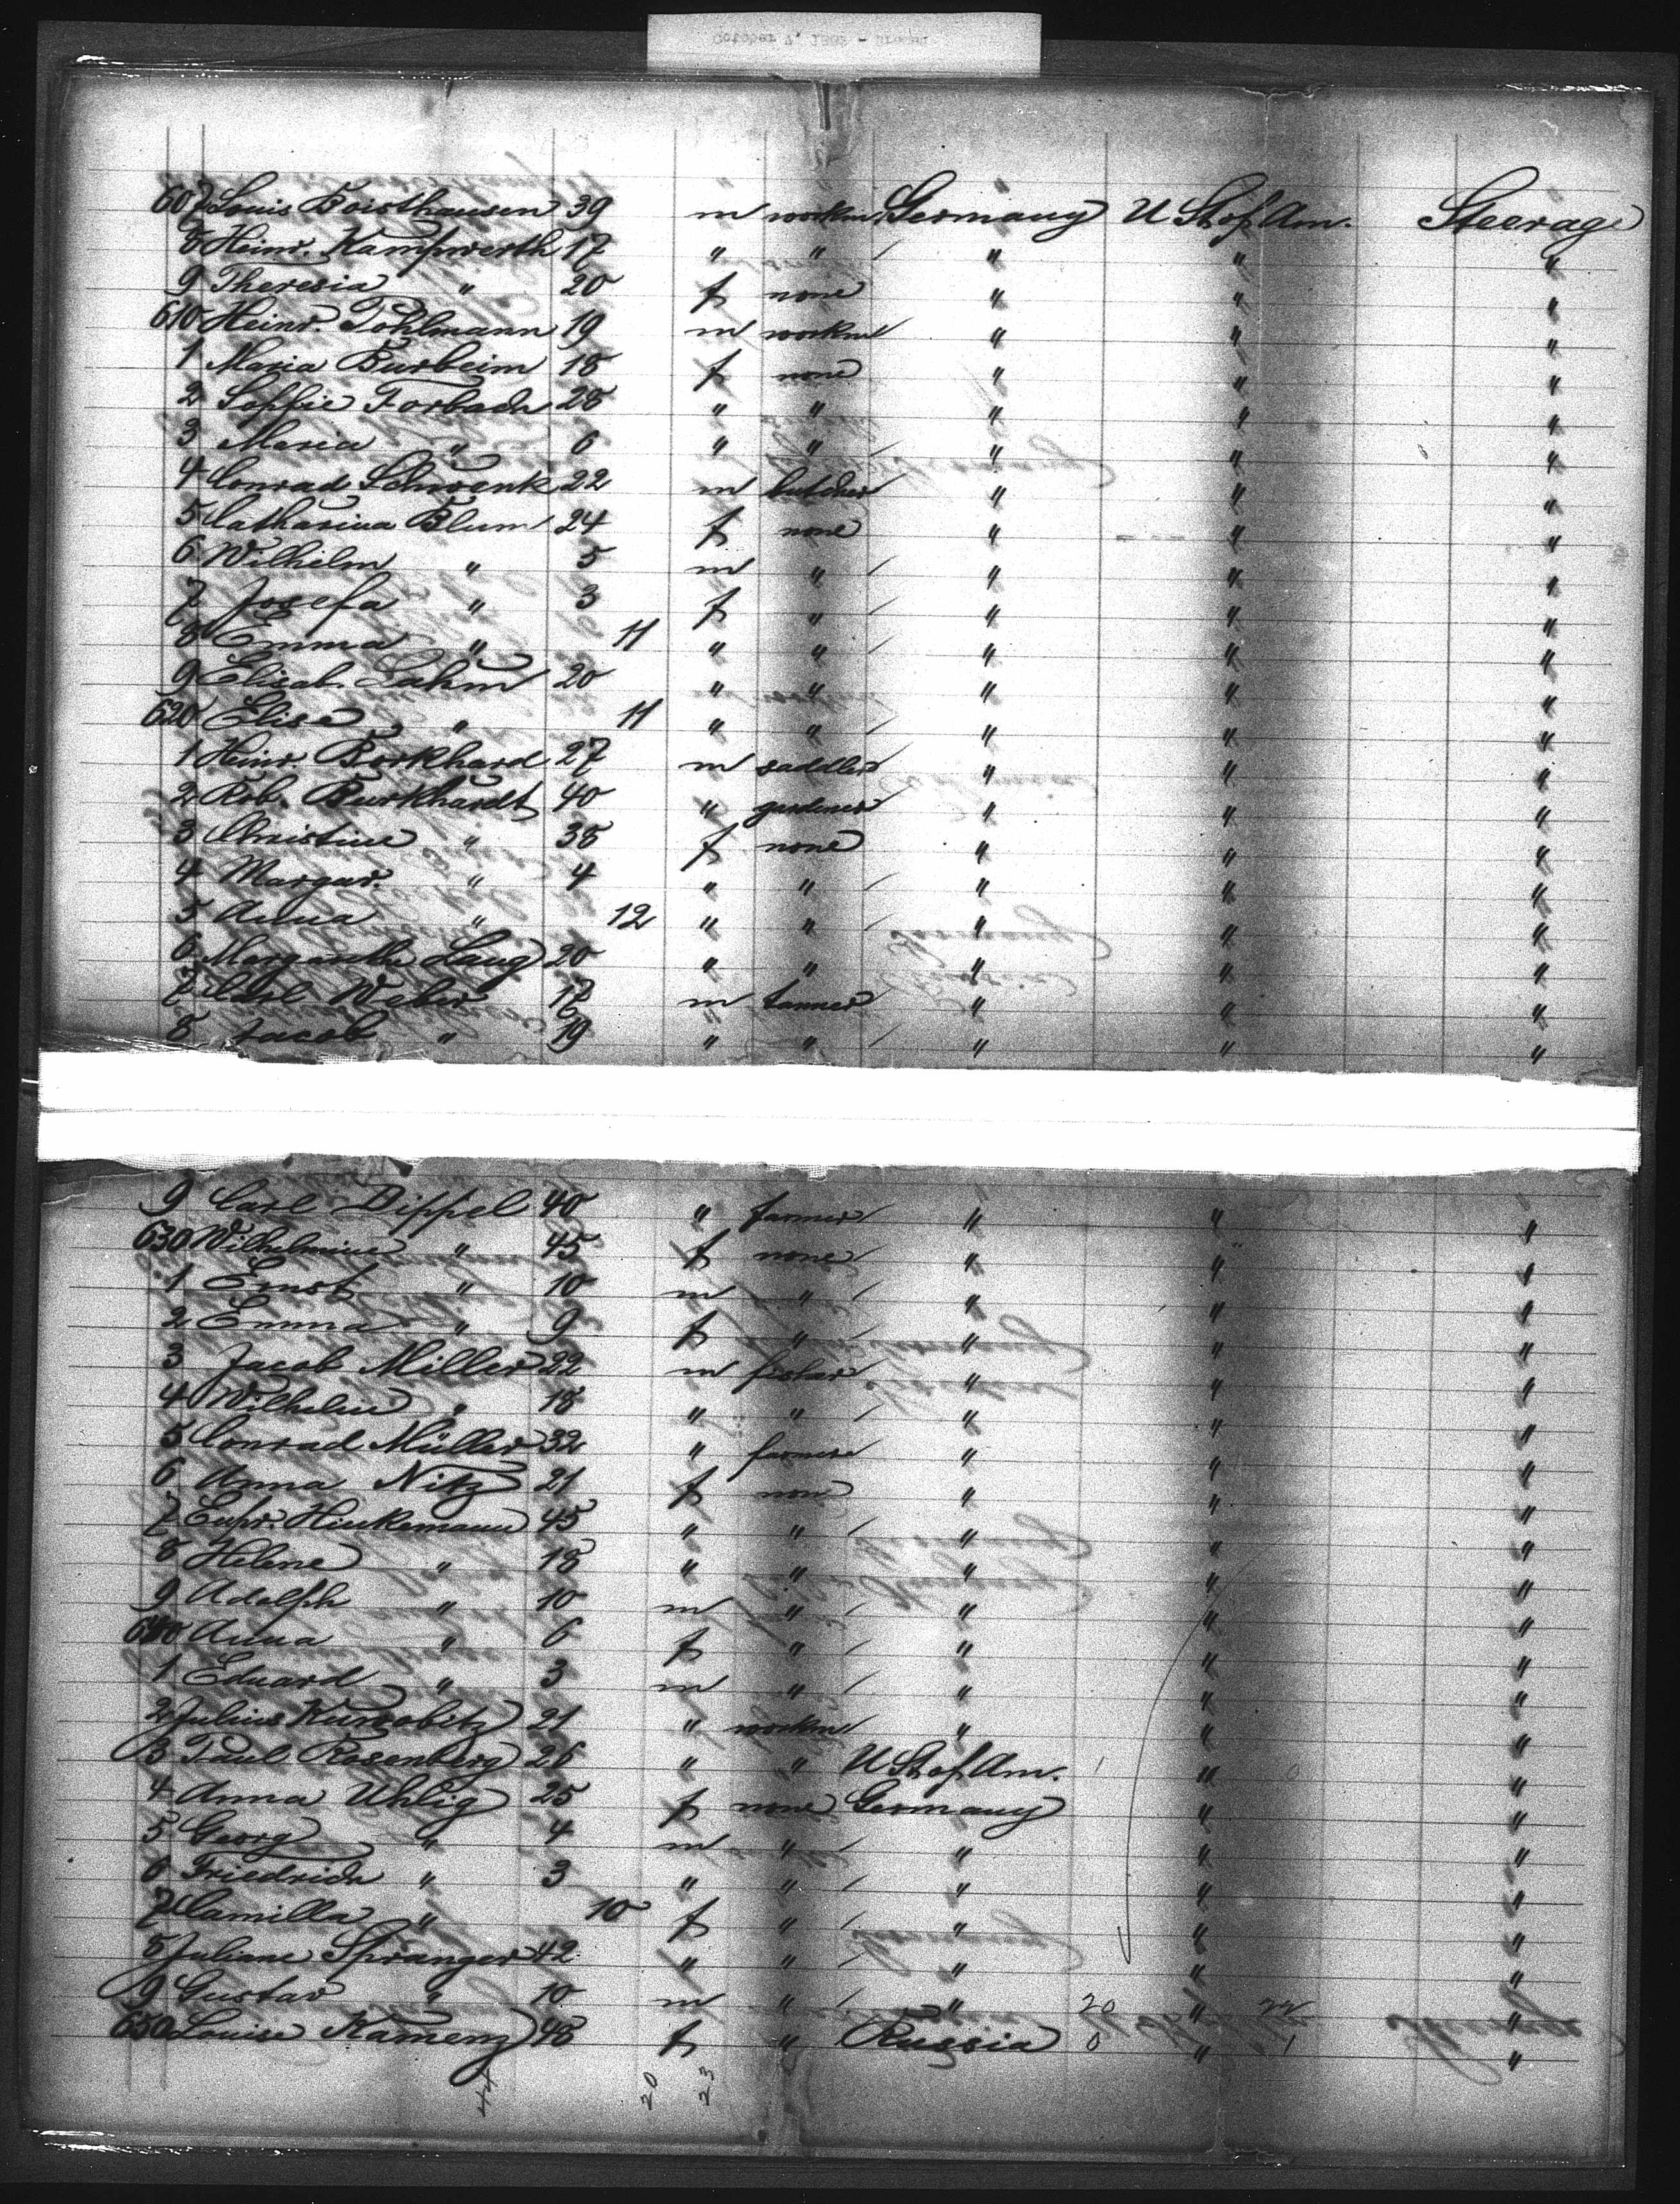 607 Louis Boisthausen 39 m workm. Germany U St of Am. Steerage
8 Heinr. Kampwerth 17 " " " " "
9 Theresia " 20 f none " " "
610 Heinr. Pohlmann 19 m workm " " "
1 Maria Burbeim 18 f none " " "
2 Sophie Forbach 28 " " " " "
3 Maria " 6 " " " " "
4 Conrad Schwenk 22 m butcher " " "
5 Catharina Blum 24 f none " " "
6 Wilhelm " 5 m " " " "
7 Josefa " 3 f " " " "
8 Emma " 11 " " " " "
9 Elisab. Lahm 20 " " " " "
620 Elise " 11 " " " " "
1 Heinr. Borkhard 27 m saddler " " "
2 Rob. Burkhardt 40 " gardener " " "
3 Christine " 38 f none " " "
4 Margar. " 4 " " " " "
5 Anna " 12 " " " " "
6 Margarethe Lang 20 " " " " "
7 Carl Weber 17 m tanner " " "
8 Jacob " 19 " " " " "
9 Carl Dippel 40 " farmer " " "
630 Wilhelmine " 45 f none " " "
1 Ernst " 10 m " " " "
2 Emma " 9 f " " " "
3 Jacob Miller 22 m fisher " " "
4 Wilhelm " 18 " " " " "
5 Conrad Müller 32 " farmer " " "
6 Anna Nitz 21 f none " " "
7 Eupr. Hinkemann 45 " " " " "
8 Helene " 18 " " " " "
9 Adolph " 10 m " " " "
640 Anna " 6 f " " " "
1 Eduard " 3 m " " " "
2 Julius 21 " workm " " "
3 Paul Rosenberg 26 " " U St of Am. " "
4 Anna Uhlig 25 f none Germany " "
5 Georg " 4 m " " " "
6 Friedrich " 3 " " " " "
7 Camilla " 10 f " " " "
8 Juliane Spranger 42 " " " " "
9 Gustav " 10 m " " 20 " "
650 Louise Kamenz 48 f " Russia 0 " 1 "
44 20 23